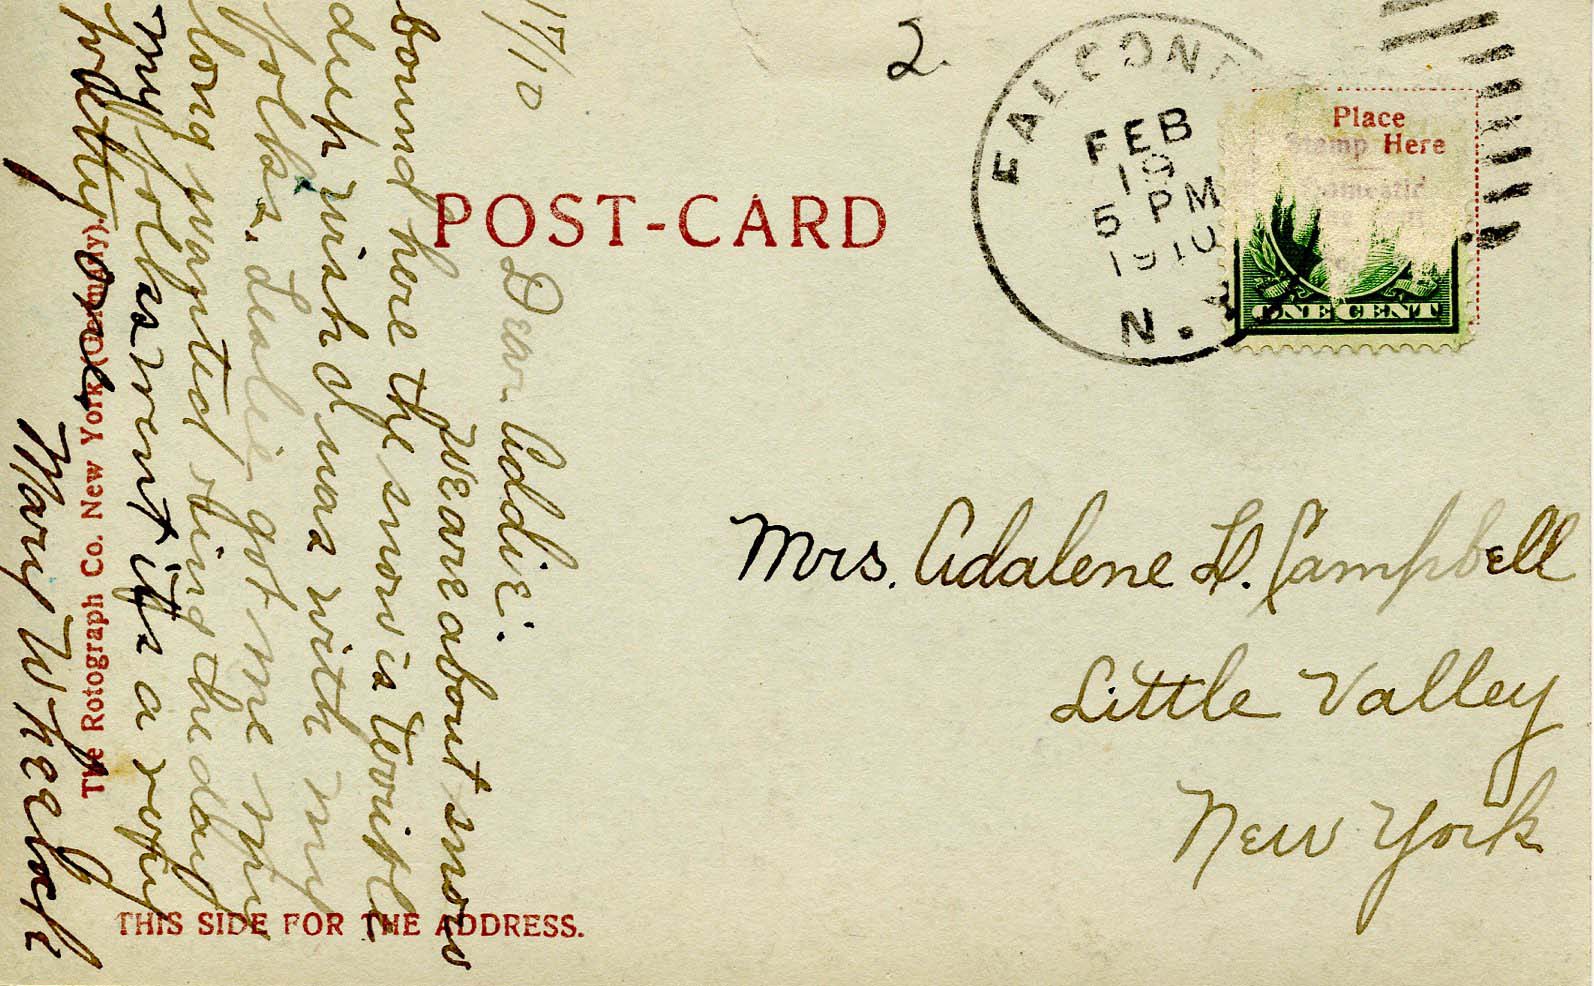 2.
FALCONE
FEB
19
5 PM
1910
N.Y.
Place
Stamp Here
Domestic
ONE CENT
POST-CARD
Mrs. Adalene L. Campbell
Little Valley
New York
THIS SIDE FOR THE ADDRESS.
The Rotograph Co. New York (Germany).
17/10
Dear Addie:
We are about snow
bound here the snow is terrible
deep wish I was with my
folks. Leslie got me my
long wanted ring the day
my folks went its a
pretty one.
Mary Wheelock